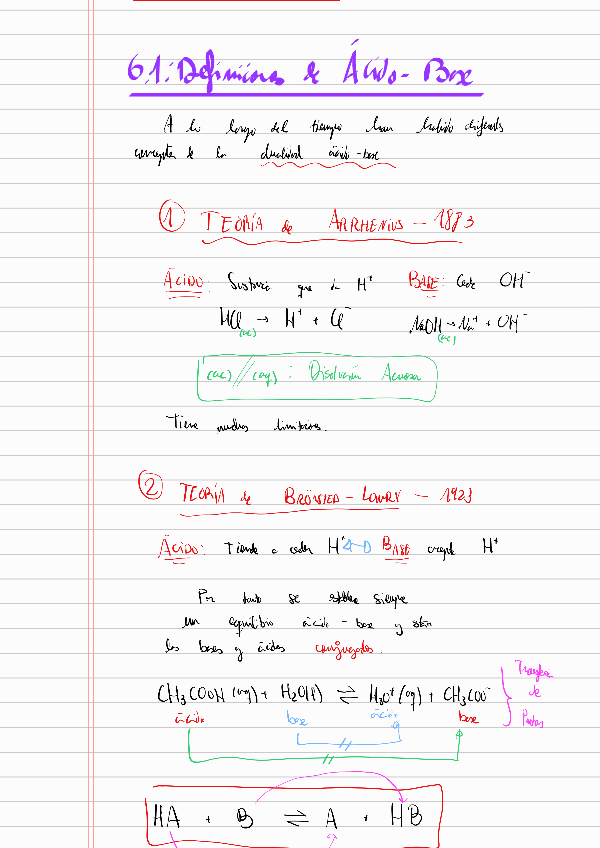 6.1: Definiciones de Ácido-Base
A lo largo del tiempo han habido diferentes
conceptos de la dualidad ácido-base
① TEORÍA de ARRHENIUS - 1883
ÁCIDO: Sustancia que da H⁺ BASE: Cede OH⁻
HCl(ac) → H⁺ + Cl⁻ NaOH(ac) → Na⁺ + OH⁻
(ac)//(aq): Disolución Acuosa
Tiene muchas limitaciones.
② TEORÍA de BRÖNSTED-LOWRY - 1923
ÁCIDO: Tiende a ceder H⁺ BASE acepta H⁺
Por tanto se siempre
un equilibrio ácido-base y están
las bases y ácidos conjugados.
CH₃COOH (aq) + H₂O(l) ⇌ H₃O⁺(aq) + CH₃COO⁻
ácido base ácido base
Transferencia
de
Protones
HA + B ⇌ A + HB